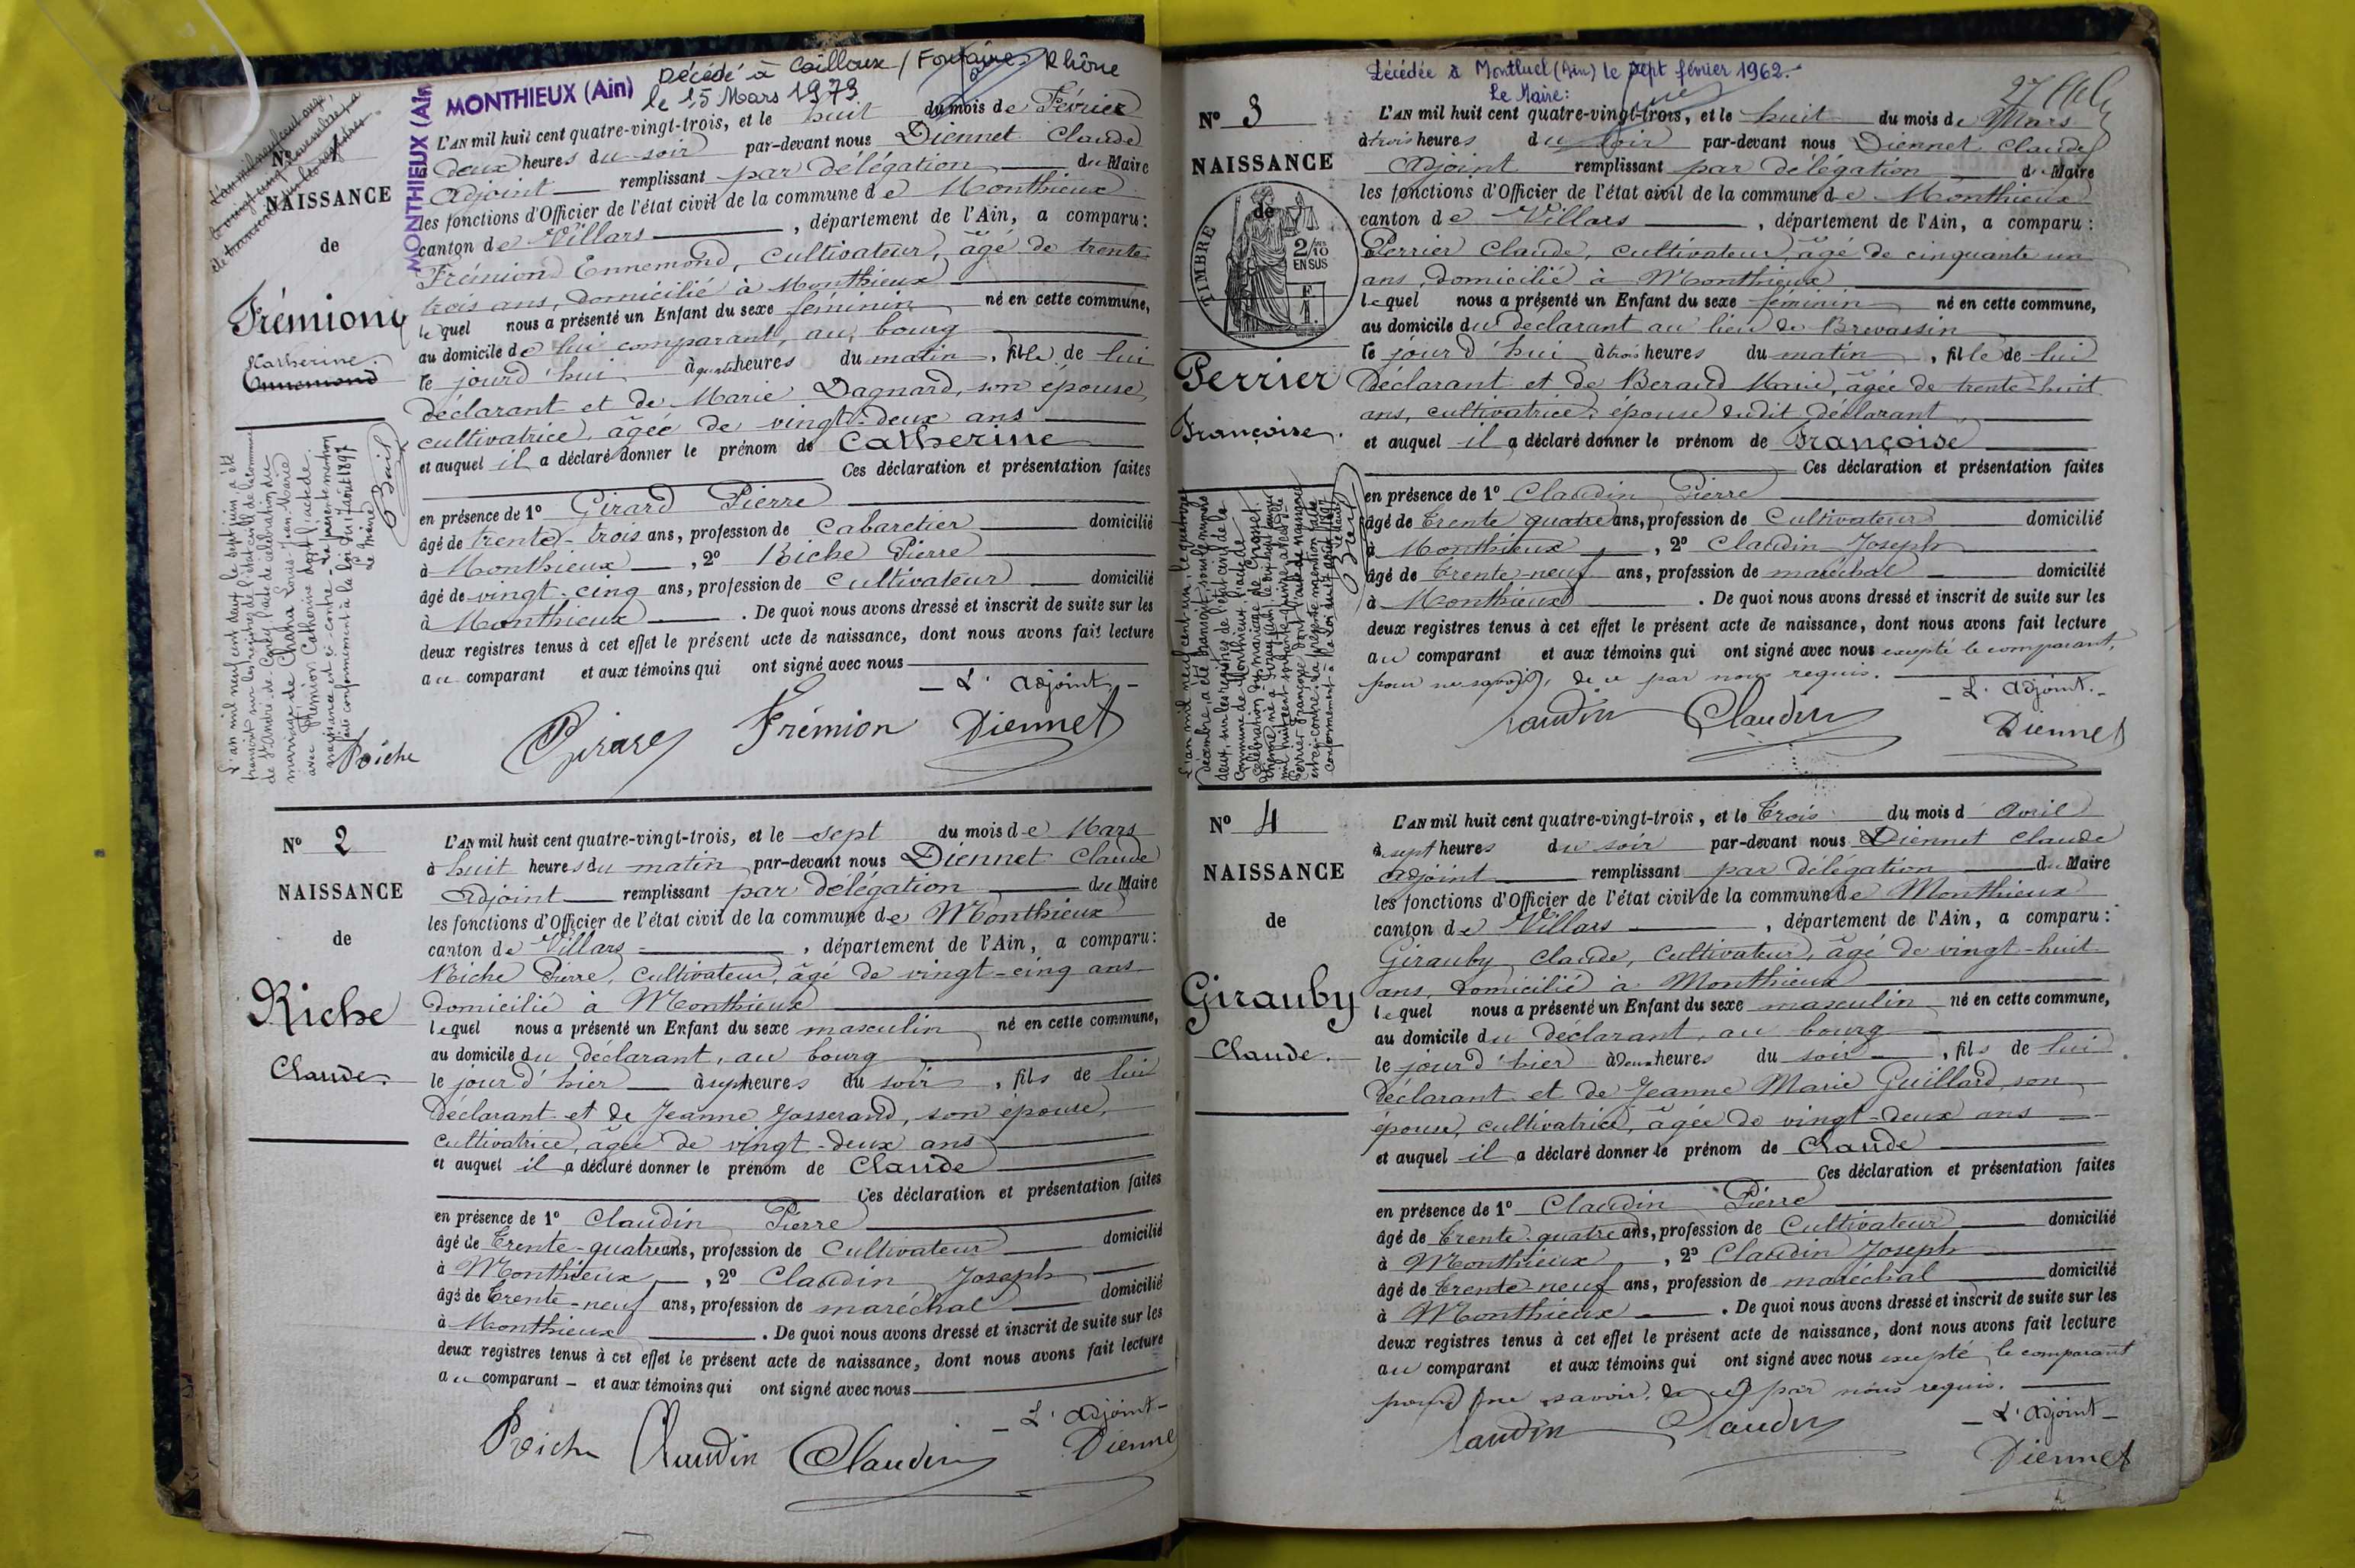 MONTHIEUX (Ain)
MONTHIEUX (Ain
Décédé à Cailloux / Fontaines Rhône
le 15 Mars 1973
Nº 1
NAISSANCE
de
Frémion
Catherine.
L'AN mil huit cent quatre-vingt-trois, et le huit du mois de Février
à deux heures du soir par-devant nous Diennet Claude
Adjoint remplissant par délégation du Maire
les fonctions d'Officier de l'état civil de la commune de Monthieux
canton de Villars, département de l'Ain, a comparu:
Frémion Ennemond, cultivateur, âgé de trente
trois ans, domicilié à Monthieux
lequel nous a présenté un Enfant du sexe féminin né en cette commune,
au domicile de lui comparant, au bourg
le jourd'hui à quatre heures du matin, fille de lui
déclarant et de Marie Dagnard, son épouse,
cultivatrice, âgée de vingt-deux ans
et auquel il a déclaré donner le prénom de Catherine
Ces déclaration et présentation faites
en présence de 1º Girard Pierre
âgé de trente-trois ans, profession de Cabaretier domicilié
à Monthieux, 2º Riche Pierre
âgé de vingt-cinq ans, profession de cultivateur domicilié
à Monthieux. De quoi nous avons dressé et inscrit de suite sur les
deux registres tenus à cet effet le présent acte de naissance, dont nous avons fait lecture
au comparant et aux témoins qui ont signé avec nous
L'adjoint
Riche Girard Frémion Diennet
L'an mil neuf cent deux le sept juin a été
transcrit sur les registres de l'état civil de la commune
de St André de Corcy l'acte de célébration du
mariage de Louis Jean Marie
avec Frémion Catherine dont l'acte de
naissance est ci-contre. La présente mention
faite conformément à la loi du 17 août 1897
Le Maire
Nº 2
NAISSANCE
de
Riche
Claude.
L'AN mil huit cent quatre-vingt-trois, et le sept du mois de Mars
à huit heures du matin par-devant nous Diennet Claude
Adjoint remplissant par délégation du Maire
les fonctions d'Officier de l'état civil de la commune de Monthieux
canton de Villars, département de l'Ain, a comparu:
Riche Pierre, Cultivateur, âgé de vingt-cinq ans
domicilié à Monthieux
lequel nous a présenté un Enfant du sexe masculin né en cette commune,
au domicile du déclarant, au bourg
le jour d'hier à sept heures du soir, fils de lui
déclarant et de Jeanne Josserand, son épouse,
cultivatrice, âgée de vingt-deux ans
et auquel il a déclaré donner le prénom de Claude
Ces déclaration et présentation faites
en présence de 1º Claudin Pierre
âgé de trente-quatre ans, profession de Cultivateur domicilié
à Monthieux, 2º Claudin Joseph
âgé de trente-neuf ans, profession de maréchal domicilié
à Monthieux. De quoi nous avons dressé et inscrit de suite sur les
deux registres tenus à cet effet le présent acte de naissance, dont nous avons fait lecture
au comparant et aux témoins qui ont signé avec nous
L'adjoint
Riche Claudin Claudin Diennet
Décédée à Montluel (Ain) le sept février 1962.
Le Maire:
Nº 3
NAISSANCE
de
TIMBRE
2/10
EN SUS
Perrier
Françoise.
L'AN mil huit cent quatre-vingt-trois, et le huit du mois de Mars
à trois heures du soir par-devant nous Diennet Claude
Adjoint remplissant par délégation du Maire
les fonctions d'Officier de l'état civil de la commune de Monthieux
canton de Villars, département de l'Ain, a comparu:
Perrier Claude, cultivateur, âgé de cinquante un
ans, domicilié à Monthieux
lequel nous a présenté un Enfant du sexe féminin né en cette commune,
au domicile du déclarant au lieu de Brevassin
le jourd'hui à trois heures du matin, fille de lui
déclarant et de Beraud Marie, âgée de trente-huit
ans, cultivatrice, épouse dudit déclarant
et auquel il a déclaré donner le prénom de Françoise
Ces déclaration et présentation faites
en présence de 1º Claudin Pierre
âgé de trente quatre ans, profession de Cultivateur domicilié
à Monthieux, 2º Claudin Joseph
âgé de trente-neuf ans, profession de maréchal domicilié
à Monthieux. De quoi nous avons dressé et inscrit de suite sur les
deux registres tenus à cet effet le présent acte de naissance, dont nous avons fait lecture
au comparant et aux témoins qui ont signé avec nous excepté le comparant,
pour ne savoir, de ce par nous requis.
L'adjoint.
Claudin Claudin Diennet
Nº 4
NAISSANCE
de
Girauby
Claude.
L'AN mil huit cent quatre-vingt-trois, et le trois du mois d'avril
à sept heures du soir par-devant nous Diennet Claude
adjoint remplissant par délégation du Maire
les fonctions d'Officier de l'état civil de la commune de Monthieux
canton de Villars, département de l'Ain, a comparu:
Girauby Claude, Cultivateur, âgé de vingt-huit
ans, domicilié à Monthieux
lequel nous a présenté un Enfant du sexe masculin né en cette commune,
au domicile du déclarant, au bourg
le jour d'hier à deux heures du soir, fils de lui
déclarant et de Jeanne Marie Guillard son
épouse, cultivatrice, âgée de vingt-deux ans
et auquel il a déclaré donner le prénom de Claude
Ces déclaration et présentation faites
en présence de 1º Claudin Pierre
âgé de trente quatre ans, profession de Cultivateur domicilié
à Monthieux, 2º Claudin Joseph
âgé de trente-neuf ans, profession de maréchal domicilié
à Monthieux. De quoi nous avons dressé et inscrit de suite sur les
deux registres tenus à cet effet le présent acte de naissance, dont nous avons fait lecture
au comparant et aux témoins qui ont signé avec nous excepté le comparant
pour ne savoir, de ce par nous requis.
L'adjoint
Claudin Claudin Diennet